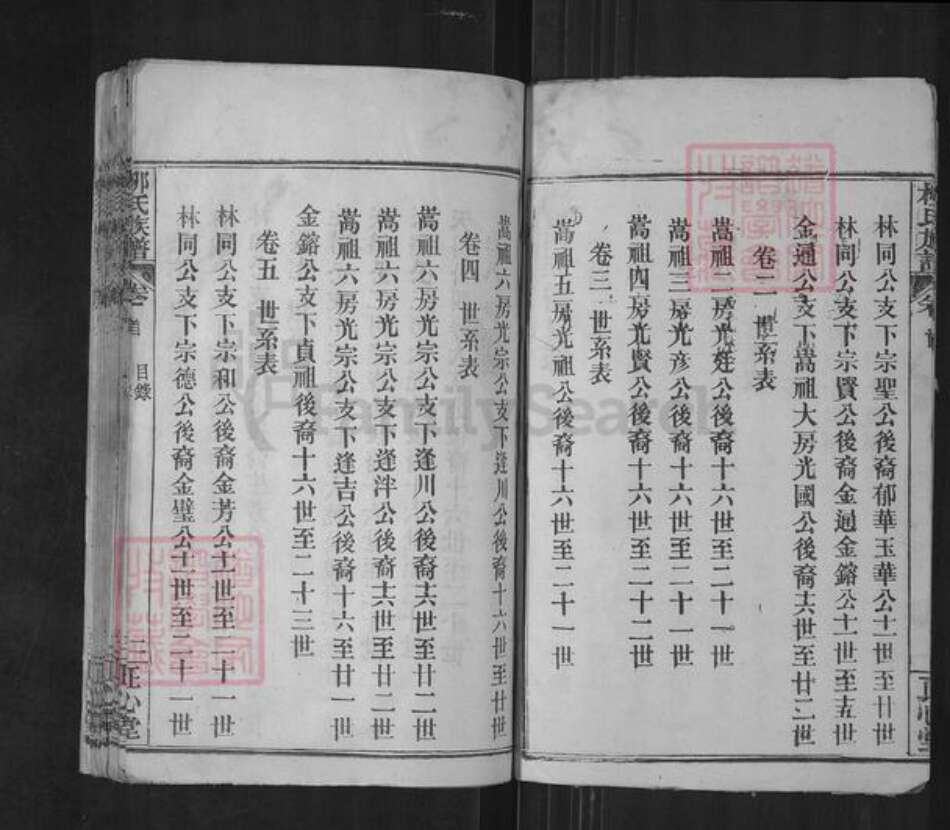 林同公支下宗聖公後裔郁華玉華公十一世至廿世
林同公支下宗賢公後裔金通金鎔公十一世至十五世
金通公支下嵩祖大房光國公後裔十六世至廿二世
卷二 世系表
嵩祖二房光姓公後裔十六世至二十一世
嵩祖三房光彥公後裔十六世至二十一世
嵩祖四房光賢公後裔十六世至二十二世
卷三 世系表
嵩祖五房光祖公後裔十六世至二十一世
嵩祖六房光宗公支下逢川公後裔十六世至廿世
卷四 世系表
嵩祖六房光宗公支下逢川公後裔十六世至廿二世
嵩祖六房光宗公支下逢泮公後裔十六世至廿二世
嵩祖六房光宗公支下逢吉公後裔十六至廿一世
金鎔公支下貞祖後裔十六世至二十三世
卷五 世系表
林同公支下宗和公後裔金芳公十一世至二十一世
林同公支下宗德公後裔金璧公十一世至二十一世
柳氏族譜 卷首 目錄
正心堂
FamilySearch